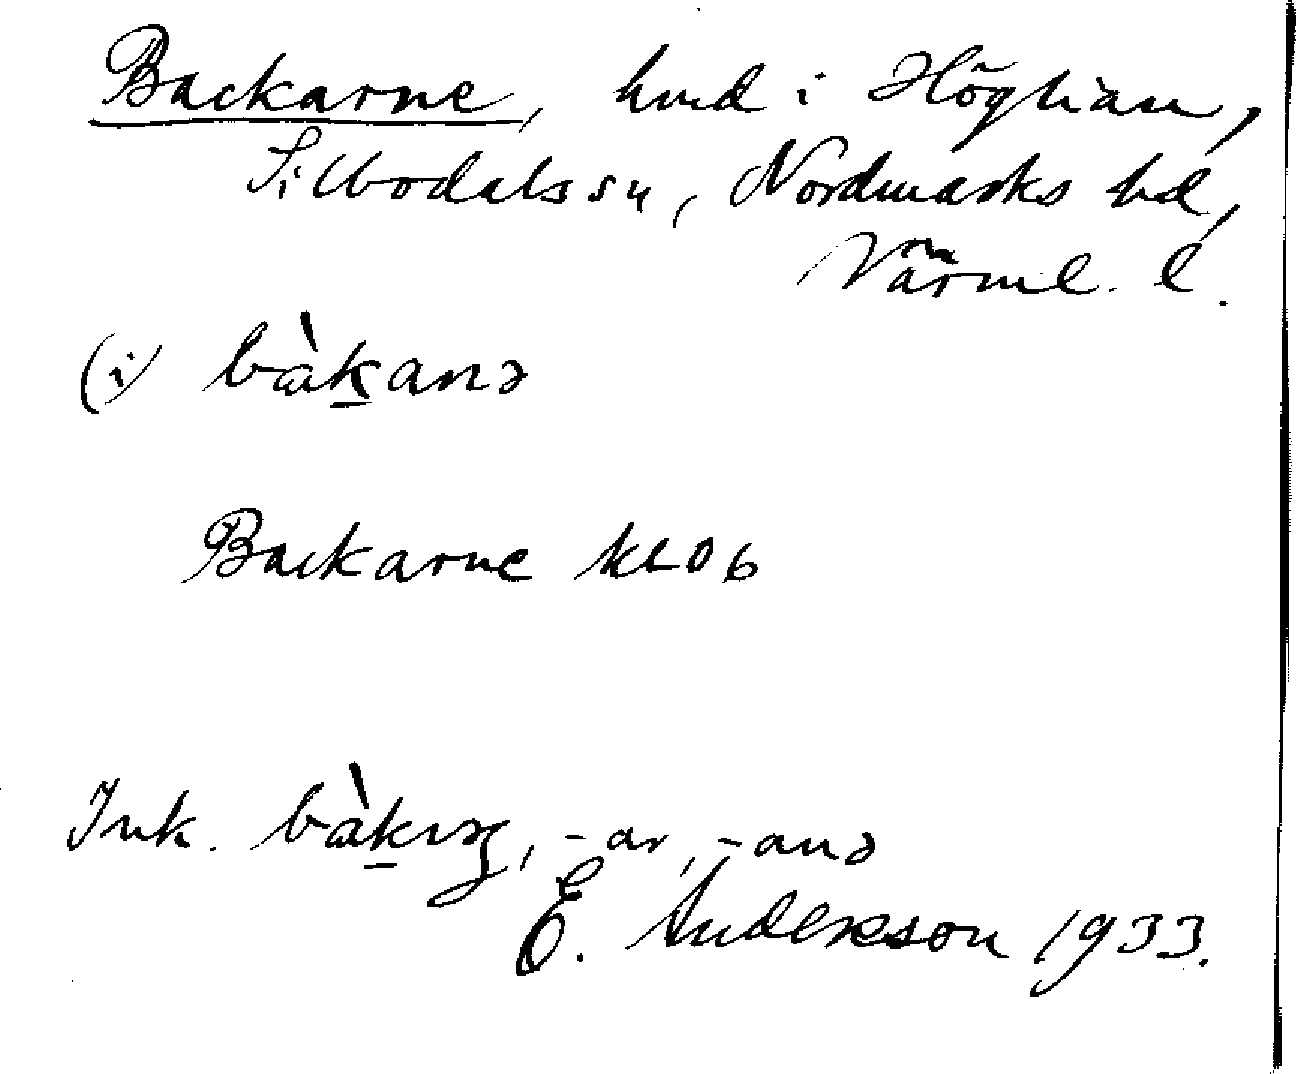 Backarne, hmd i Höglian,
Silbodals sn, Nordmarks hd,
Värml. l.
(i) bàkanə
Backarne kl 06
Ink. bàkıŋ, -ar, -anə
E. Anderson 1933.